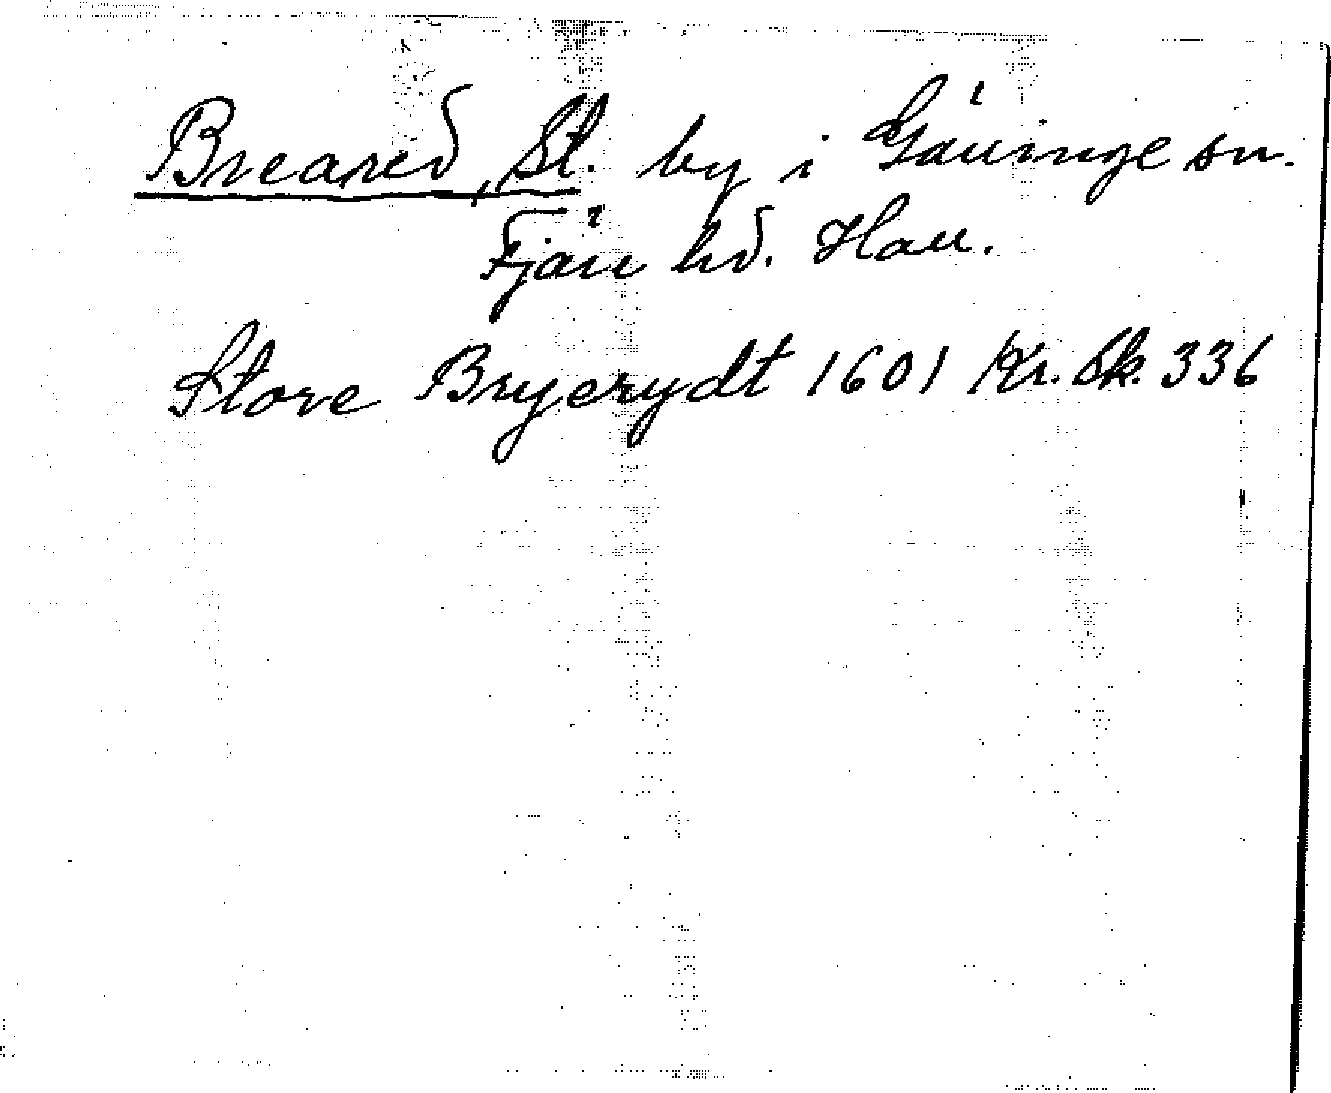 Breared, St. by i Gällinge sn.
Fjäre hd. Hall.
Store Bryerydt 1601 Kr. Sk. 336